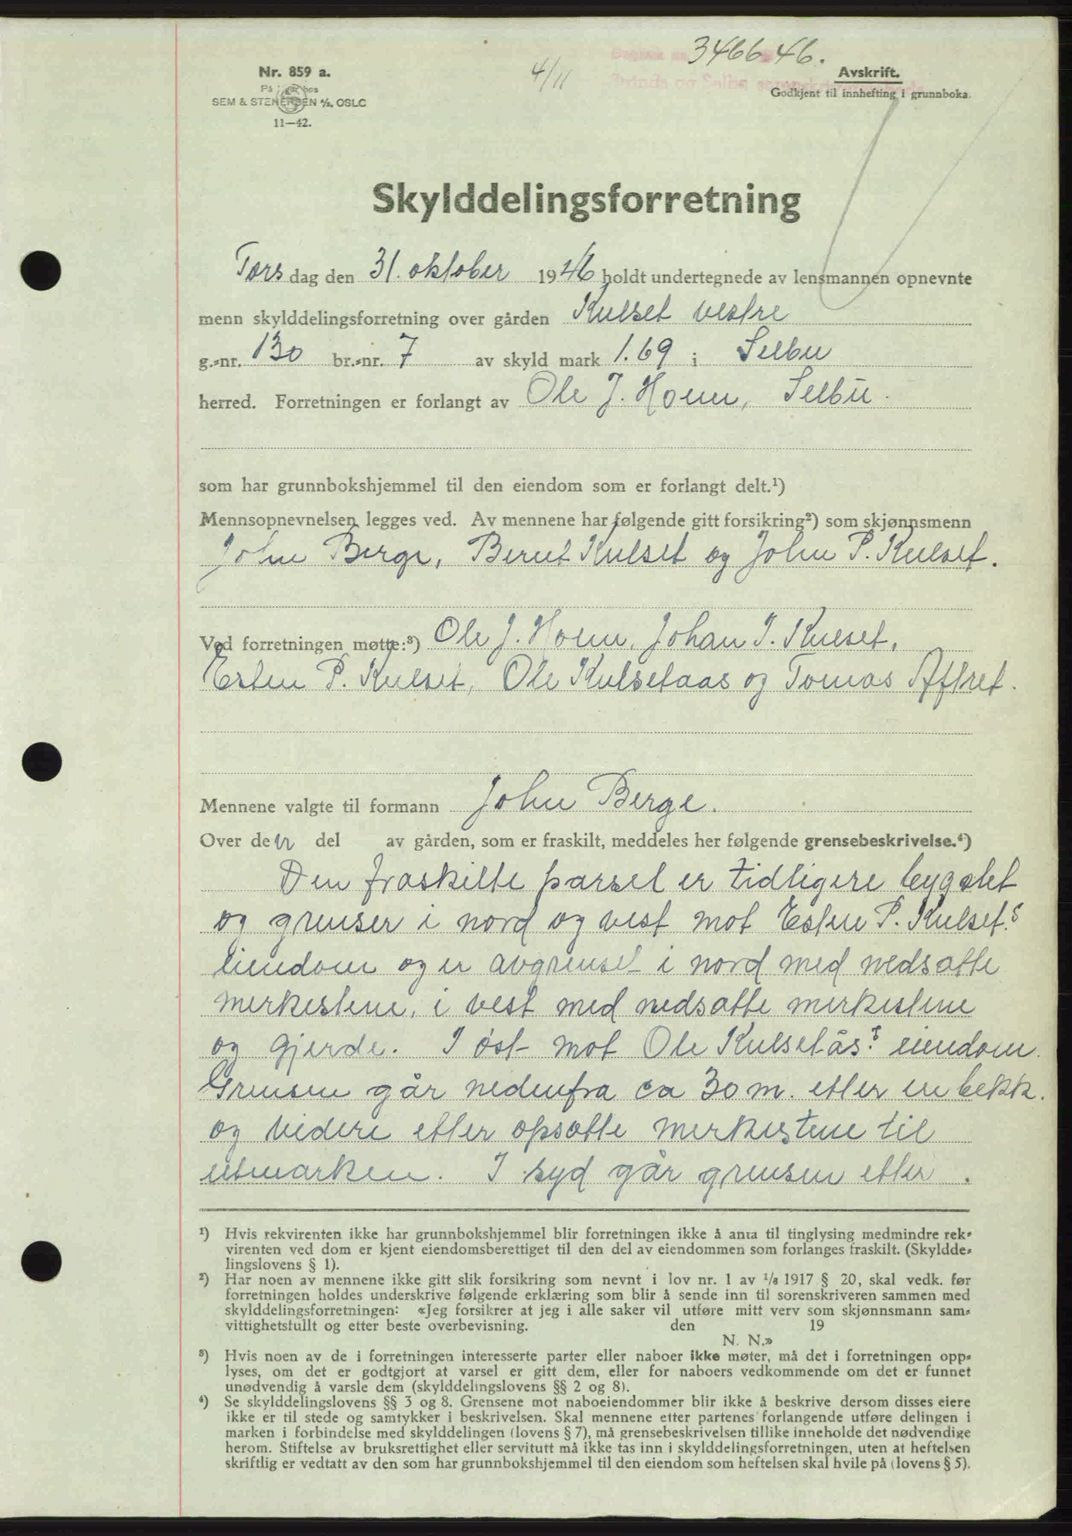 3466 46.
4/11
Nr. 859 a.
På lager hos
SEM & STENERSEN A/S, OSLO
11—42.
Avskrift.
Godkjent til innhefting i grunnboka.
Skylddelingsforretning
Torsdag den 31. oktober 1946 holdt undertegnede av lensmannen opnevnte
menn skylddelingsforretning over gården Kulset vestre
g.-nr. 130 br.-nr. 7 av skyld mark 1.69 i Selbu
herred. Forretningen er forlangt av Ole J. Hoem, Selbu.
som har grunnbokshjemmel til den eiendom som er forlangt delt.¹)
Mennsopnevnelsen legges ved. Av mennene har følgende gitt forsikring²) som skjønnsmenn
John Berge, Bernt Kulset og John P. Kulset.
Ved forretningen møtte:³) Ole J. Hoem, Johan J. Kulset,
Esten P. Kulset, Ole Kulsetaas og Tomas Aftret.
Mennene valgte til formann John Berge.
Over den del av gården, som er fraskilt, meddeles her følgende grensebeskrivelse.⁴)
Den fraskilte parsel er tidligere bygslet
og grenser i nord og vest mot Esten P. Kulset's
eiendom og er avgrenset i nord med nedsatte
merkestene, i vest med nedsatte merkestene
og gjerde. I øst mot Ole Kulsetås's eiendom.
Grensen går nedenfra ca 30 m. etter en bekk.
og videre etter opsatte merkestene til
utmarken. I syd går grensen etter.
¹) Hvis rekvirenten ikke har grunnbokshjemmel blir forretningen ikke å anta til tinglysing medmindre rek-
virenten ved dom er kjent eiendomsberettiget til den del av eiendommen som forlanges fraskilt. (Skyldde-
lingslovens § 1).
²) Har noen av mennene ikke gitt slik forsikring som nevnt i lov nr. 1 av 1/8 1917 § 20, skal vedk. før
forretningen holdes underskrive følgende erklæring som blir å sende inn til sorenskriveren sammen med
skylddelingsforretningen: «Jeg forsikrer at jeg i alle saker vil utføre mitt verv som skjønnsmann sam-
vittighetsfullt og etter beste overbevisning. den 19
N. N.»
³) Hvis noen av de i forretningen interesserte parter eller naboer ikke møter, må det i forretningen opp-
lyses, om det er godtgjort at varsel er gitt dem, eller for naboers vedkommende om det er funnet
unødvendig å varsle dem (skylddelingslovens §§ 2 og 8).
⁴) Se skylddelingslovens §§ 3 og 8. Grensene mot naboeiendommer blir ikke å beskrive dersom disses eiere
ikke er til stede og samtykker i beskrivelsen. Skal mennene etter partenes forlangende utføre delingen i
marken i forbindelse med skylddelingen (lovens § 7), må grensebeskrivelsen tillike inneholde det nødvendige
herom. Stiftelse av bruksrettighet eller servitutt må ikke tas inn i skylddelingsforretningen, uten at heftelsen
skriftlig er vedtatt av den som har grunnbokshjemmel til den eiendom som heftelsen skal hvile på (lovens § 5).